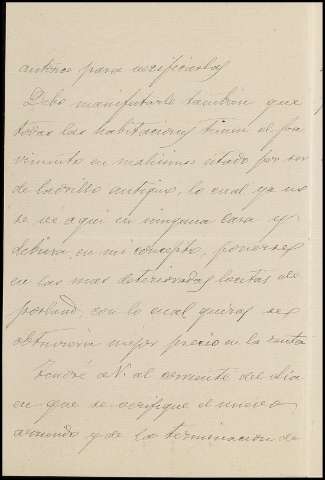 antes para verificarlas
Debo manifestarle tambien que
todas las habitaciones tienen el pa
vimento en malisimo estado por ser
de ladrillo antiguo, lo cual ya no
se ve aqui en ninguna casa y
debiera, en mi concepto, ponerse
en las mas deterioradas losetas de
porland, con lo cual quizas se
obtuviera mejor precio en la renta
Tendré a V. al corriente del dia
en que se verifique el nuevo
arriendo y de la terminacion de